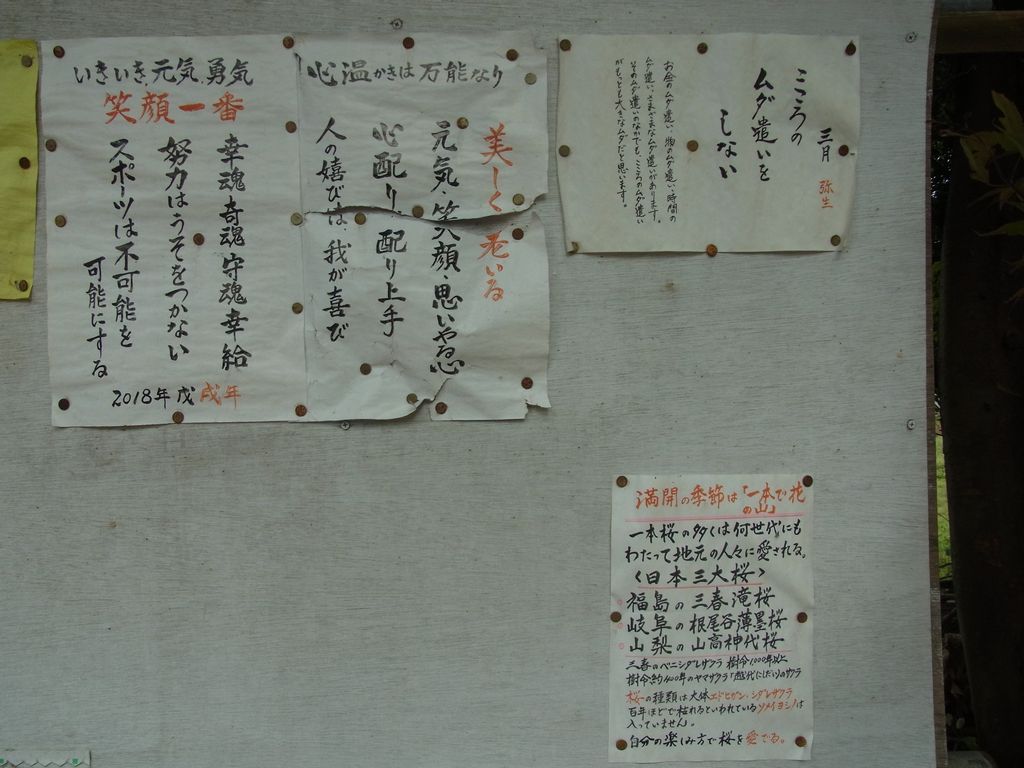 いきいき元気勇気
笑顔一番
幸魂奇魂守魂幸給
努力はうそをつかない
スポーツは不可能を
可能にする
2018年戊戌年
心温かきは万能なり
美しく老いる
元気、笑顔、思いやる心
心配り、配り上手
人の嬉びは、我が喜び
三月 弥生
こころの
ムダ遣いを
しない
お金のムダ遣い、物のムダ遣い、時間の
ムダ遣い、さまざまなムダ遣いがあります。
そのムダ遣いのなかでも、こころのムダ遣い
がもっとも大きなムダだと思います。
満開の季節は「一本で花
の山」
一本桜の多くは何世代にも
わたって地元の人々に愛される。
〈日本三大桜〉
福島の三春滝桜
岐阜の根尾谷薄墨桜
山梨の山高神代桜
三春のベニシダレザクラ 樹令1000年以上
樹令約400年のヤマザクラ
桜の種類は大体エドヒガン、シダレザクラ
百年ほどで枯れるといわれているソメイヨシノは
入っていません。
自分の楽しみ方で桜を愛でる。